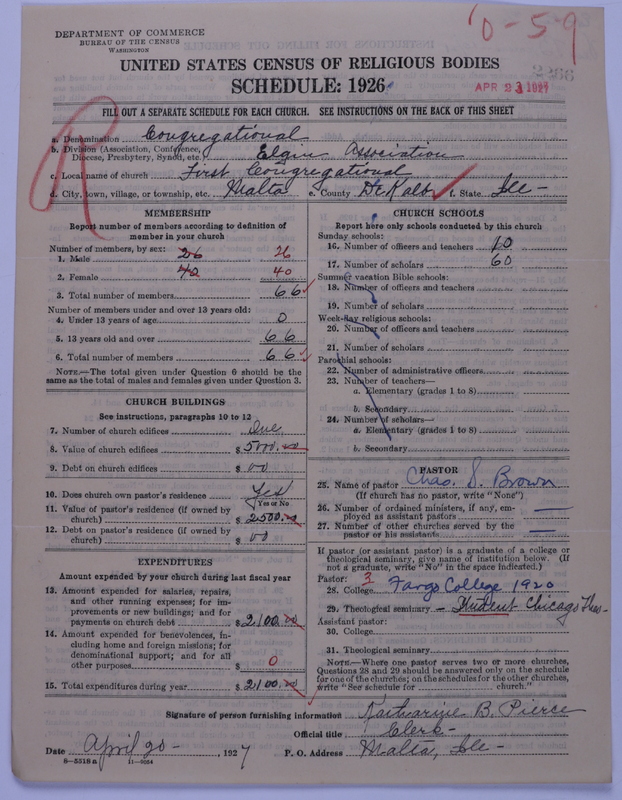 DEPARTMENT OF COMMERCE
BUREAU OF THE CENSUS
WASHINGTON
0-59
2266
APR 23 1927
UNITED STATES CENSUS OF RELIGIOUS BODIES
SCHEDULE: 1926
FILL OUT A SEPARATE SCHEDULE FOR EACH CHURCH. SEE INSTRUCTIONS ON THE BACK OF THIS SHEET
R
a. Denomination Congregational
b. Division (Association, Conference,
Diocese, Presbytery, Synod, etc. Elgin Association
c. Local name of church First Congregational
d. City, town, village, or township, etc. Malta e. County DeKalb f. State Ill-
MEMBERSHIP
Report number of members according to definition of
member in your church
Number of members, by sex:
1. Male 26 26
2. Female 40 40
3. Total number of members 66
Number of members under and over 13 years old:
4. Under 13 years of age 0
5. 13 years old and over 66
6. Total number of members 66
NOTE.—The total given under Question 6 should be
same as the total of males and females given under Question 3.
CHURCH BUILDINGS
See instructions, paragraphs 10 to 12
7. Number of church edifices One
8. Value of church edifices $ 5000.00
9. Debt on church edifices $ 00
10. Does church own pastor's residence Yes
Yes or No
11. Value of pastor's residence (if owned by
church) $ 2500.00
12. Debt on pastor's residence (if owned by
church) $ 00
EXPENDITURES
Amount expended by church during last fiscal year
13. Amount expended for salaries, repairs,
and other running expenses; for im-
provements or new buildings; and for
payments on church debt $ 2,100.00
14. Amount expended for benevolences, in-
cluding home and foreign missions; for
denominational support; and for all
other purposes $ 0
15. Total expenditures during year $ 2100.00
CHURCH SCHOOLS
Report here only schools conducted by this church
Sunday schools:
16. Number of officers and teachers 10
17. Number of scholars 60
Summer vacation Bible schools:
18. Number of officers and teachers
19. Number of scholars
Week-day religious schools:
20. Number of officers and teachers
21. Number of scholars
Parochial schools:
22. Number of administrative officers
23. Number of teachers—
a. Elementary (grades 1 to 8)
b. Secondary
24. Number of scholars—
a. Elementary (grades 1 to 8)
b. Secondary
PASTOR
25. Name of pastor Chas. S. Brown
(If church has no pastor, write "None")
26. Number of ordained ministers, if any, em-
ployed as assistant pastors —
27. Number of other churches served by the
pastor or his assistants —
If pastor (or assistant pastor) is a graduate of a college or
theological seminary, give name of institution below. (If
not a graduate, write "No" in the space indicated.)
Pastor: 3
28. College Fargo College 1920
29. Theological seminary - Student Chicago Theo-
Assistant pastor:
30. College
31. Theological seminary
NOTE.—Where one pastor serves two or more churches,
Questions 28 and 29 should be answered only on the schedule
for one of the churches; on the schedules for the other churches,
write "See schedule for church."
Signature of person furnishing information Katharine B. Pierce
Official title Clerk-
Date April 20- , 1927 P. O. Address Malta, Ill-
8—5518a 11—9054